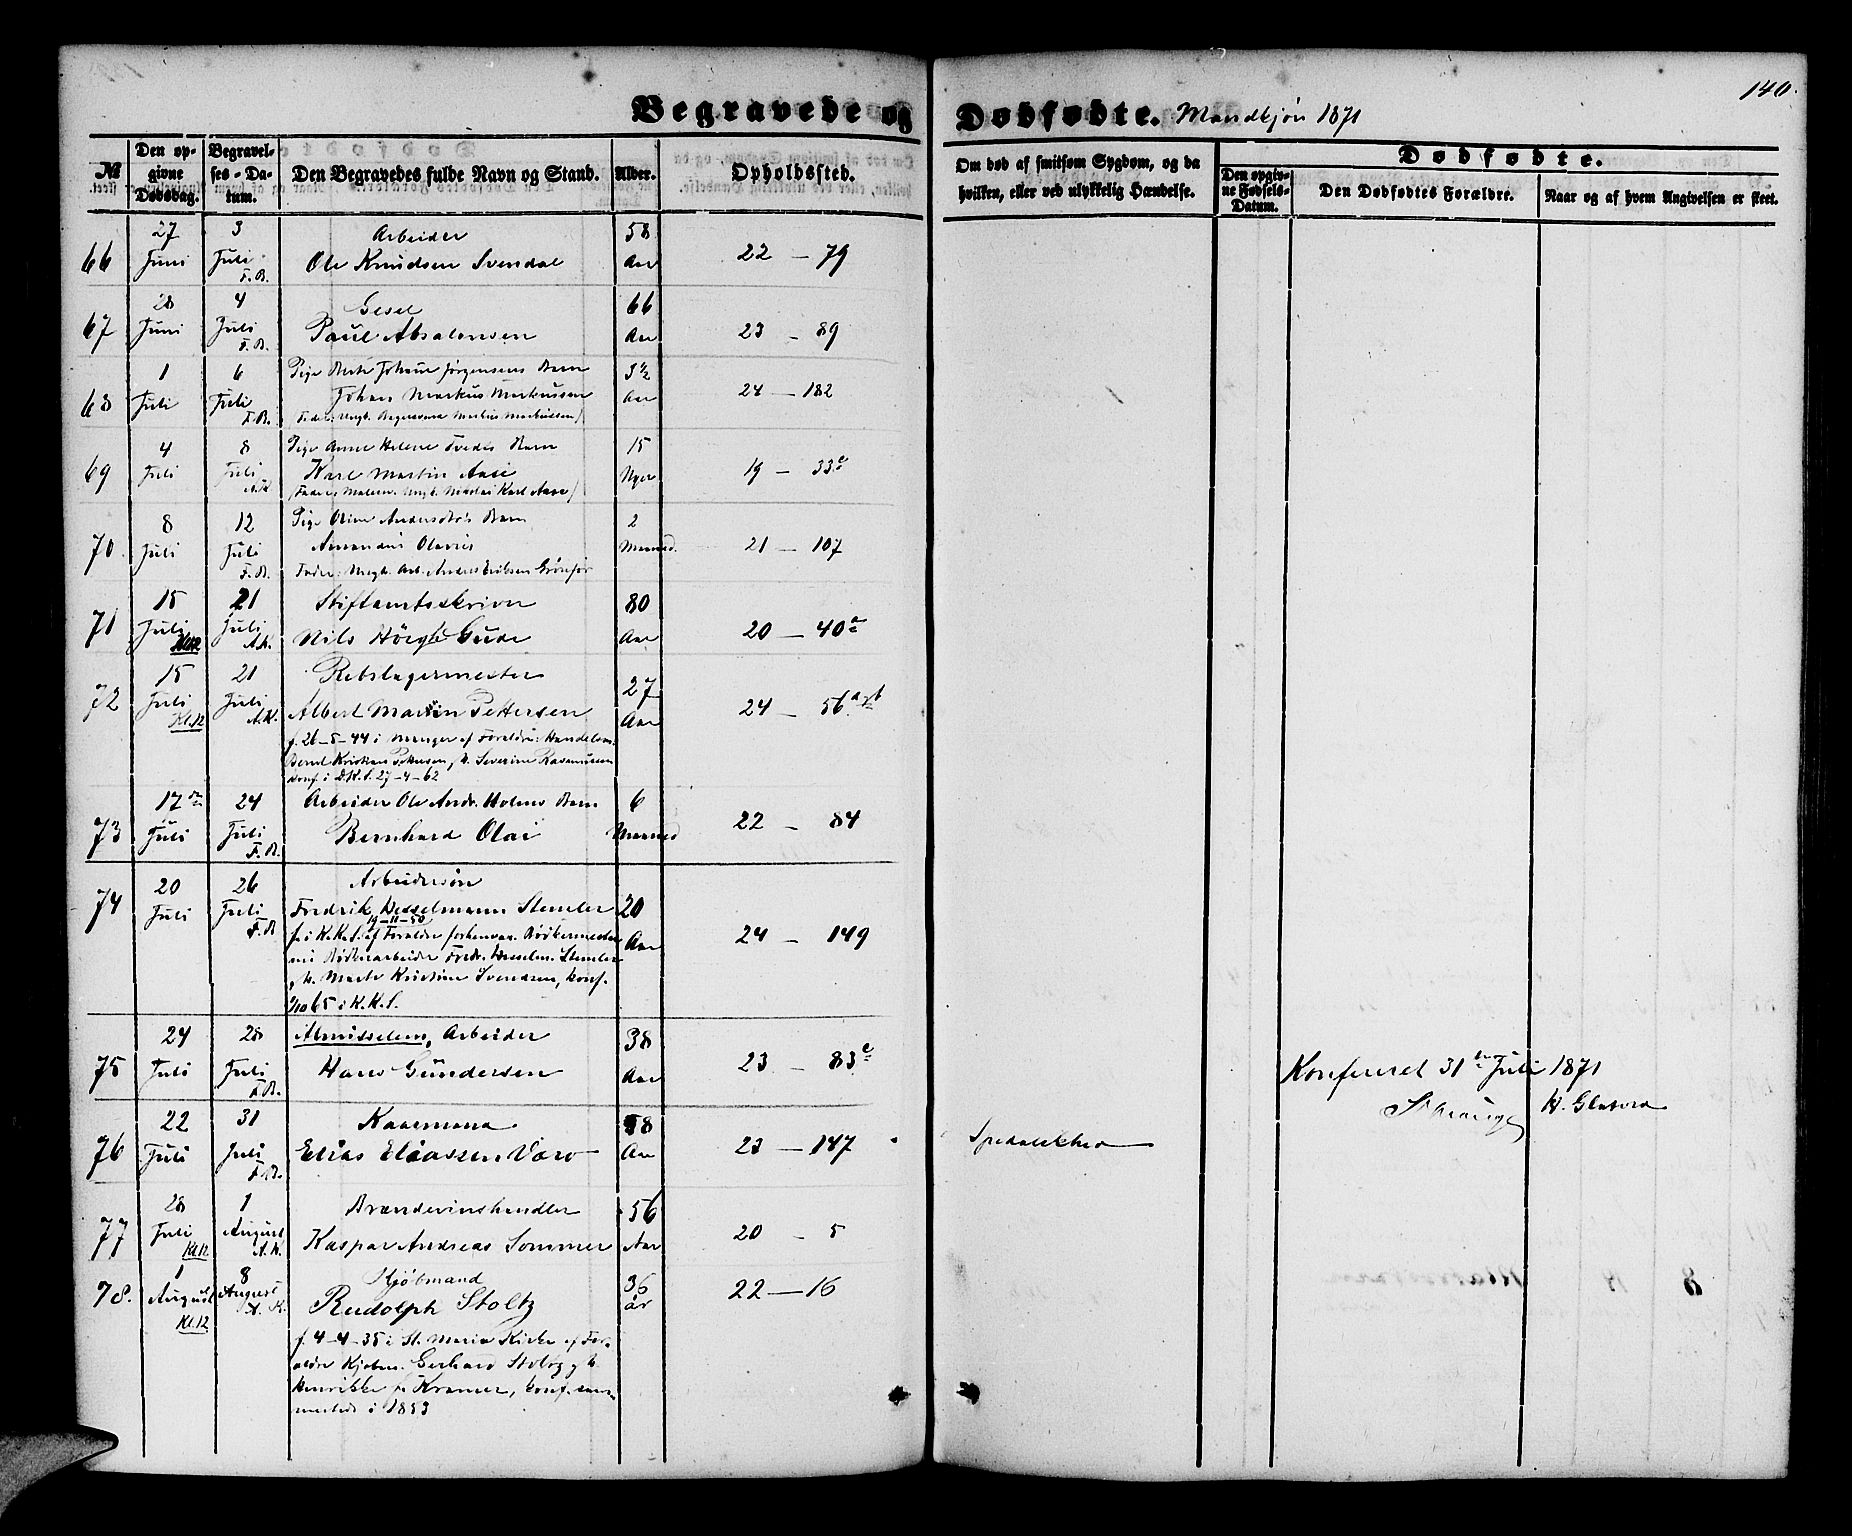 140.
Begravede og Dødfødte. Mandkjøn 1871
№
Den opgivne Dødsdag.
Begravelses-Datum.
Den Begravedes fulde Navn og Stand.
Alder.
Opholdssted.
Om død af smitsom Sygdom, og da hvilken, eller ved ulykkelig Hændelse.
Dødfødte.
Den opgivne Fødsels-Datum.
Den Dødfødtes Forældre.
Naar og af hvem Angivelsen er skeet.
66 27 Juni 3 Juli F.B. Arbeider 58 Aar 22 — 79
Ole Knudsen Svendal
67 28 Juni 4 Juli F.B. Gesel 66 Aar 23 - 89
Paul Absalonsen
68 1 Juli 6 Juli F.B. Pige Berte Johanne Jørgensens Barn 3½ Aar 24 - 182
Johan Markus Markussen
Fader: Ungk. Markus Markussen)
69 4 Juli 8 Juli A.K. Pige Anne Helene Tvedes Barn 15 Uger 19 - 33c
Karl Martin Aase
(Fader, Malersv. Ungk. Nikolai Karl Aase)
70. 8 Juli 12 Juli F.B. Pige Oline Andersdtrs Barn 2 Maaned. 21 - 107
Amandus Olavus
Fader: Ungk. Arb. Anders Eriksen
71 15 Juli Kl.12 21 Juli A.K. Stiftamtsskriver 80 Aar 20 — 40a
Nils Høegh Gude
72 15 Juli Kl.12 21 Juli A.K. Rebslagermester 27 Aar 24 — 56 a & b
Albert Martin Pettersen
f. 26-5-44 i Manger af Foraldre: Handelsm.
Bernt Kristian Pettersen, & h. Severine Rasmussen
konf. i D.K.S. 27-4-62
73 17de Juli 24 Juli F.B. Arbeider Ole Andr. Holms Barn 6 Maaned 22 - 84
Bernhard Olai
74 20 Juli 26 Juli F.B. Arbeidersøn 20 Aar 24 - 149
Fredrik Wesselmann Stemler
19-11-50
f. i K.K.S. af Foraldre forhenvær. Bødkermester
nu Bødkerarbeider Fredr. Wesselm. Stemler
& h. Marte Kristine Svendsen, konf.
65 i K.K.S.
75 24 Juli 28 Juli F.B. Almisselem, Arbeider 38 Aar 23 - 83c
Hans Gundersen
Konfereret 31te Juli 1871
76 22 Juli 31 Juli F.B. Kaarmand 58 Aar 23 — 147 Spedalskhed
Elias Eliassen
77 28 Juli Kl.12 1 August A.K. Brændevinshandler 56 Aar 20 - 5
Kaspar Andreas Sommer
78. 1 August Kl.12 8 August A.K. Kjøbmand 36 år 22 — 16
Rudolph Stoltz
f. 4-4-35 i St. Maria Kirke af Foraldre Kjøbm. Gerhard Stoltz & h.
Henrikke f. Kramer, konf. sammesteds i 1853